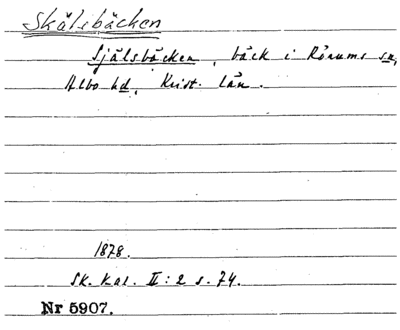 Skälsbäcken
Själsbäcken, bäck i Rörums sn,
Albo hd, Krist. län.
1878.
Sk. Kal. II: 2 s. 74.
Nr 5907.